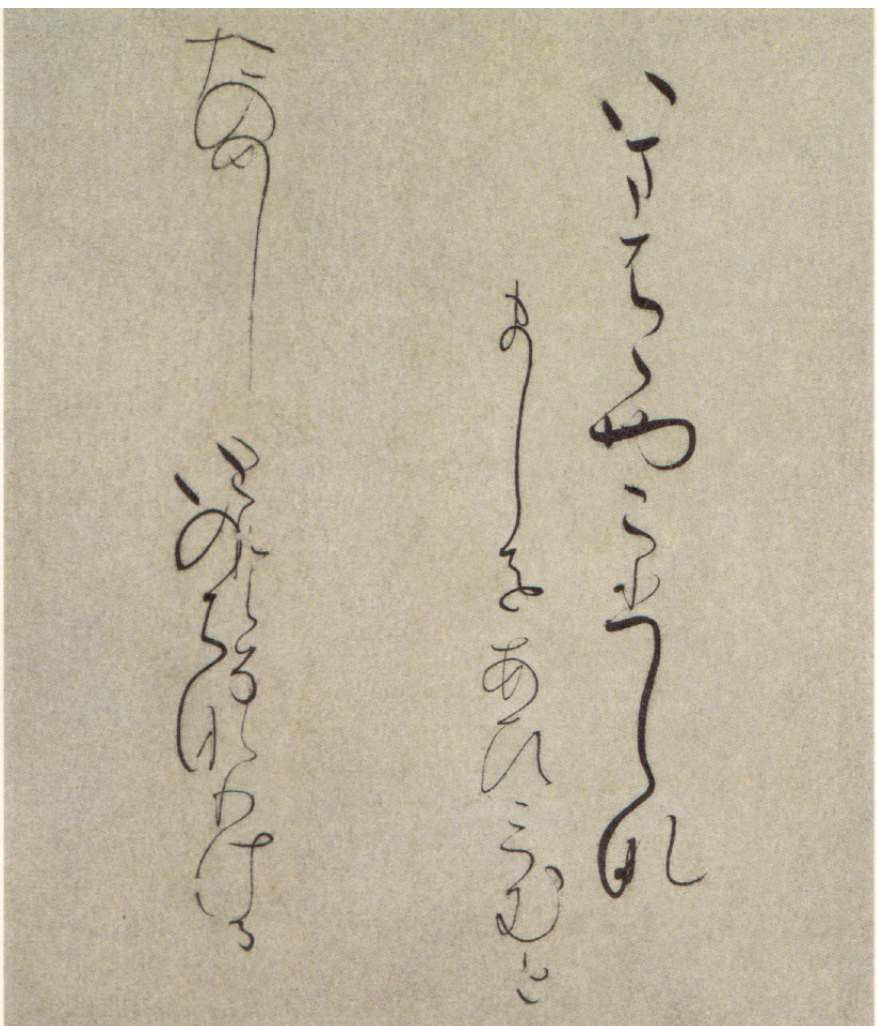 いまはゝやこひしな
ましをあひみむと
たのめし
ことそ
いのちなりける